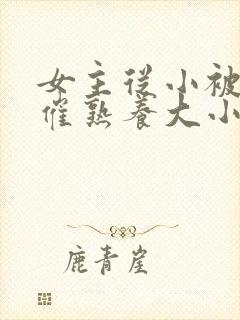 女主从小被
催熟养大小
鹿青崖